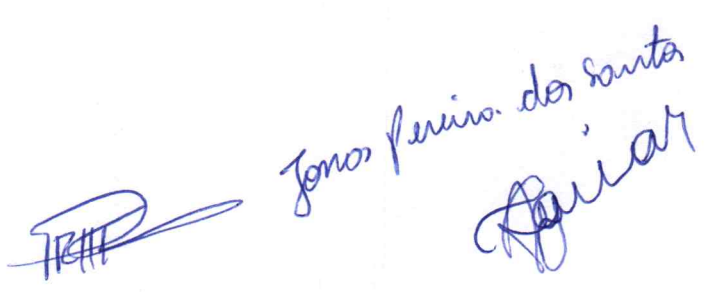 Jonas Pereira dos Santos
Aguiar